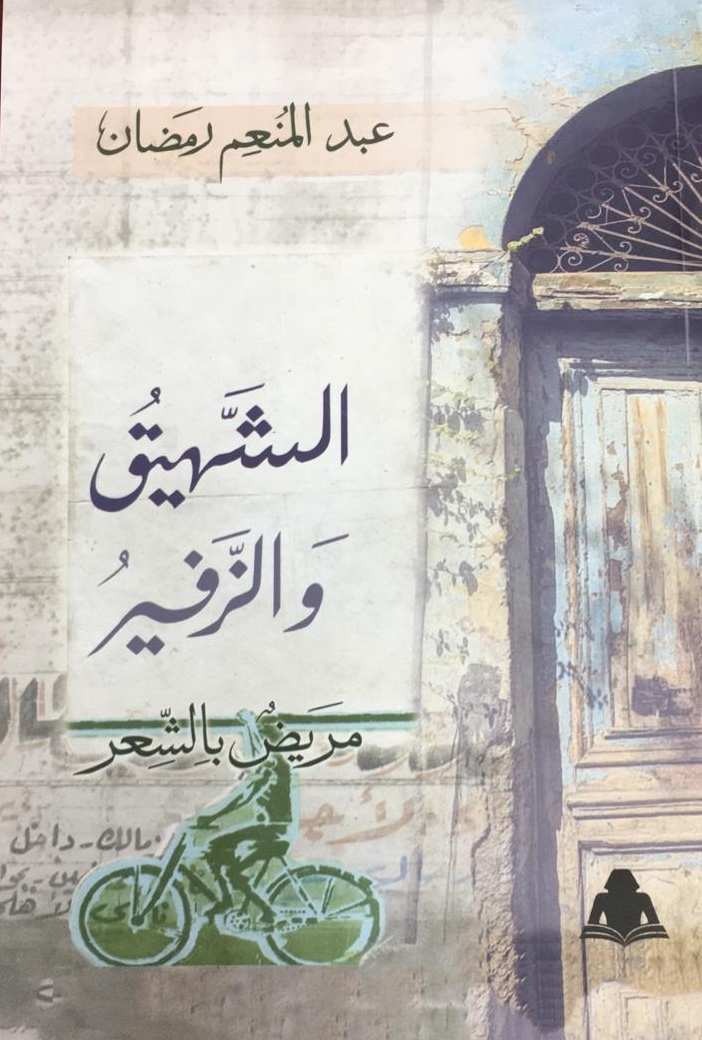 عبد المُنعِم رمَضان
الشَّهيقُ
وَالزَّفيرُ
مَريَضٌ بالِشِّعر
مالك - داخل